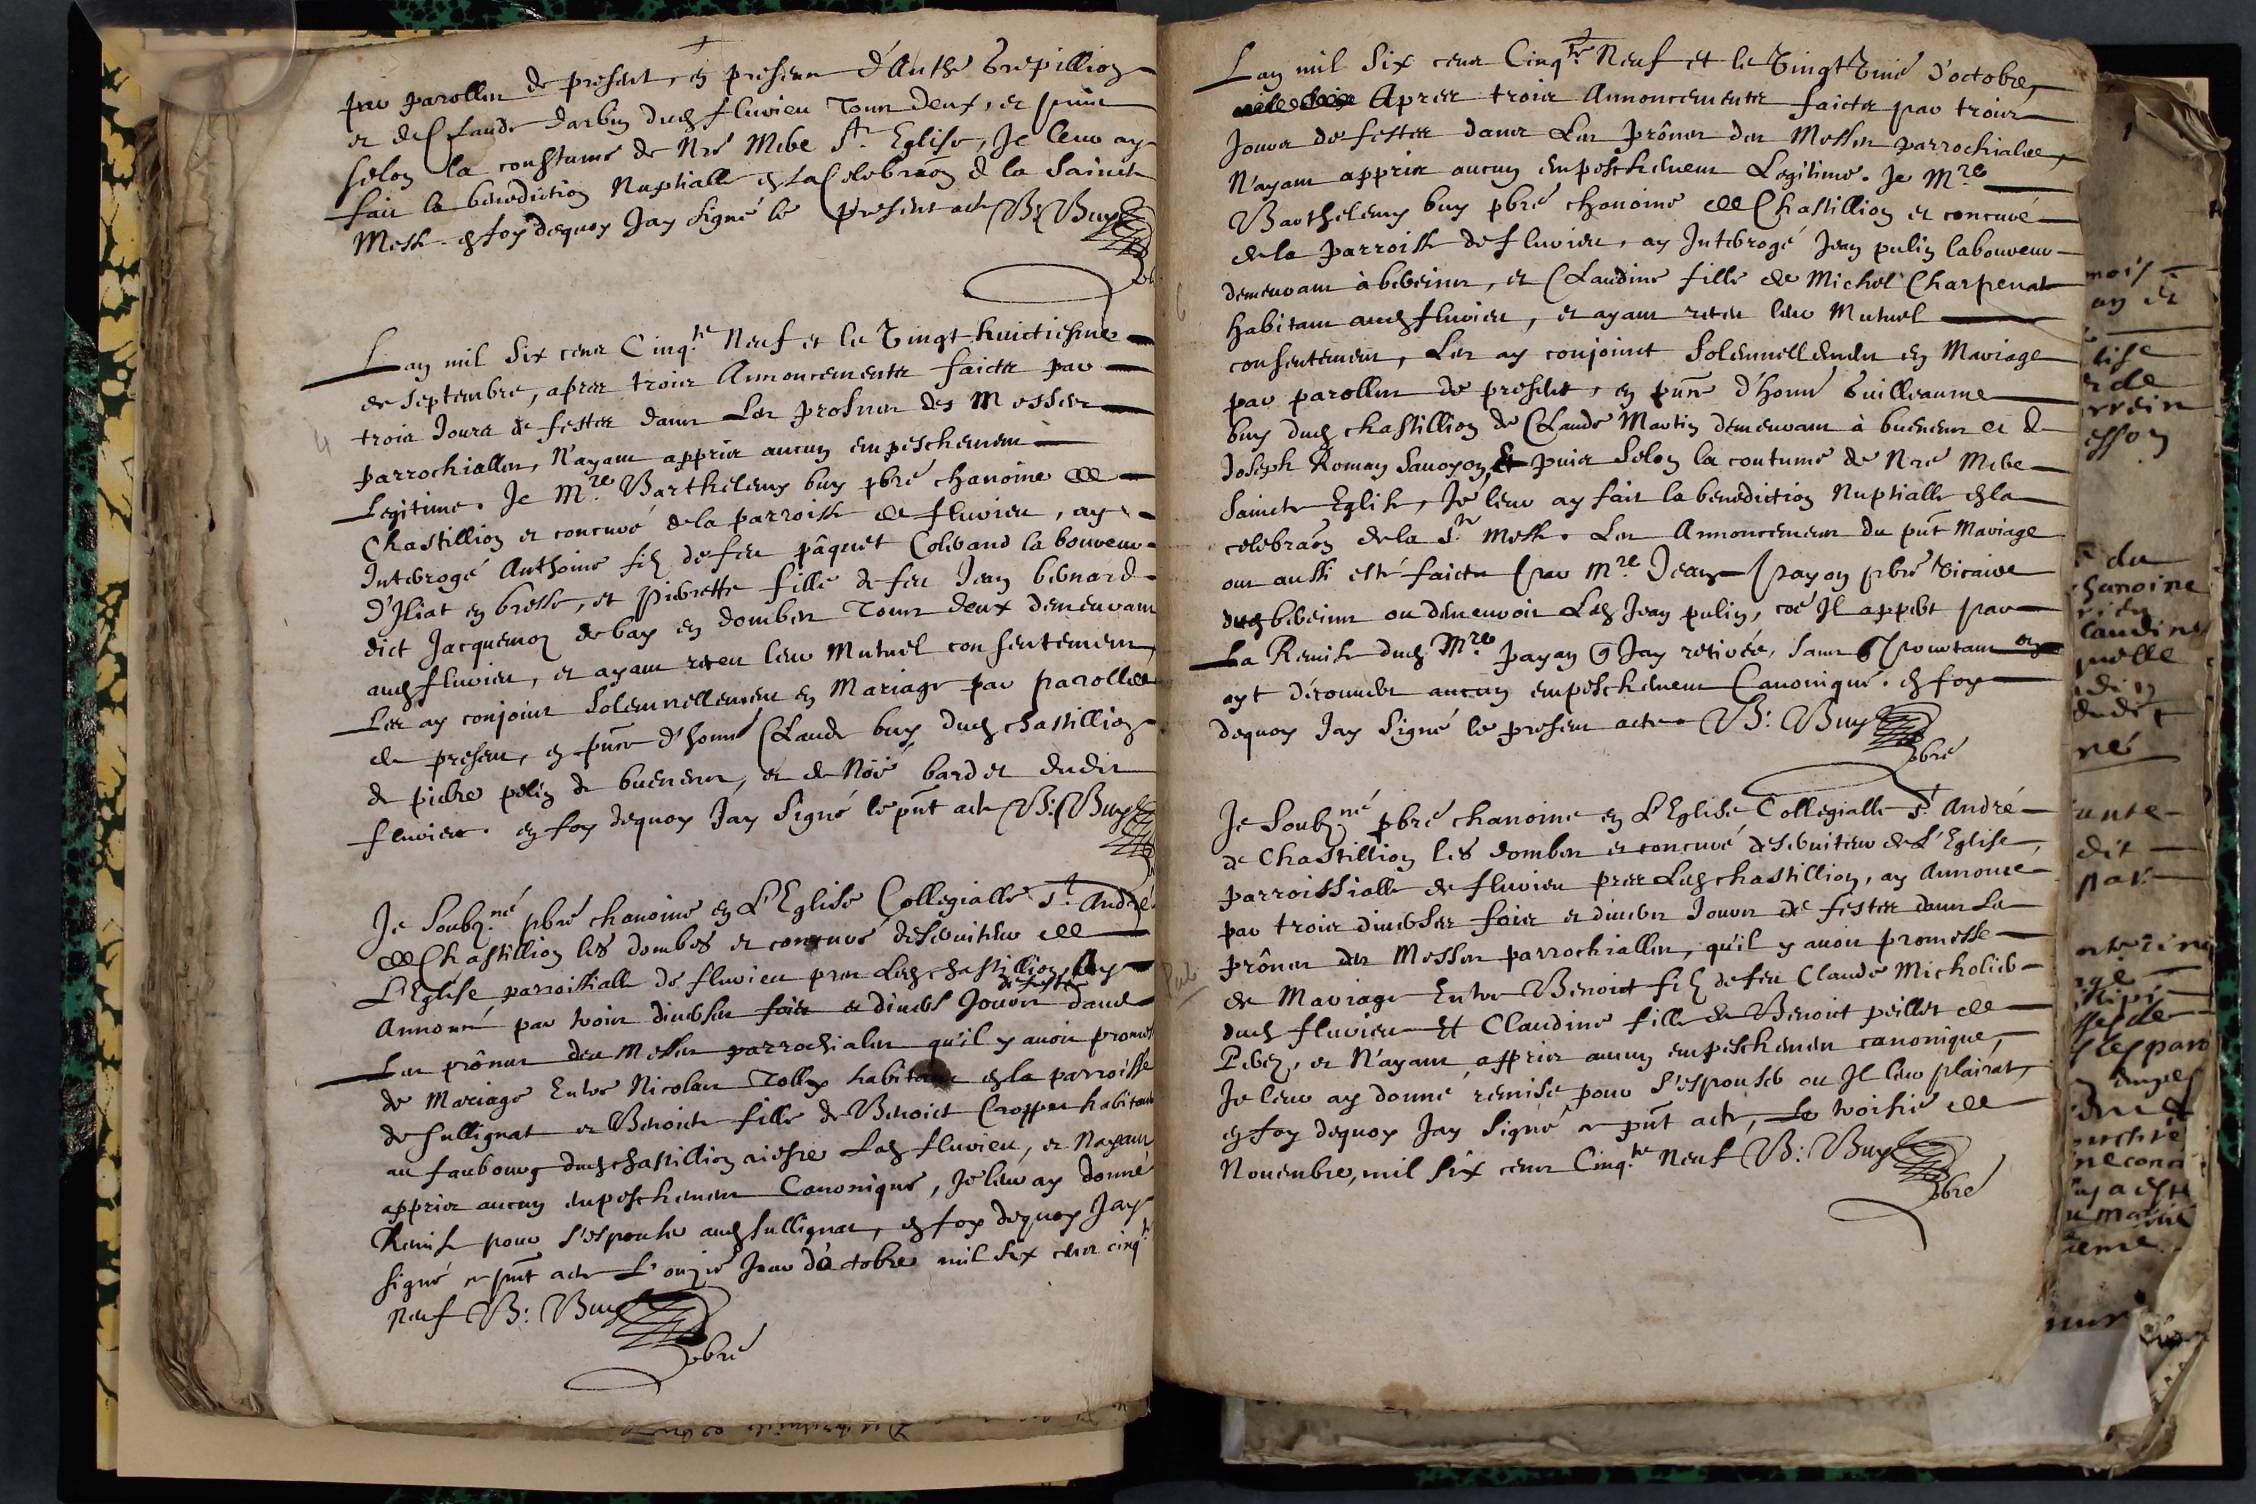 par parolles de present, en presence d'Anthe Grepillion
et de Claude Darbin dud fluvieu Tous deux, et puis
selon la coustume de Nre Mere Ste Eglise, Je leur ay
fait la benediction Nuptialle en la Celebraon de la Saincte
Messe. en foy dequoy Jay signé le present acte B: Buy
pbre
L an mil six cens Cinqte Neuf et le Vingt huictiesme
de septembre, apres trois Annoncements faicts par
trois Jours de festes dans Les prosnes des Messes
parrochialles, N'ayant appris aucun empeschement
Legitime. Je Mre Barthelemy buy pbre chanoine de
Chastillion et concuré de la parroisse de fluvieu, ay
Interogé Anthoine filz de feu pâquet Colerand laboureur
d'Iliat en bresse, et Pierrette fille de feu Jean bernard
dict Jacquemoz de bay en dombes Tous deux demeurant
aud fluvieu, et ayant receu leur Mutuel consentement,
Les ay conjoint solemnellement en Mariage par parolles
de present, en pnce d'honn Claude buy dud chastillion
de pierre pelin de buenens, et de Noé bardet dudit
fluvieu. en foy dequoy Jay signé le pnt acte B: Buy
Je Soubzné pbre chanoine en L'Eglise Collegialle St André
de Chastillion les dombes et concuré deserviteur de
L'Eglise parroissialle de fluvieu pres Led chastillion, Ay
Annoncé par trois diverses fois et divers Jours de festes dans
Les prônes des Messes parrochiales qu'il y avoit promesse
de Mariage Entre Nicolas Tolly habitant en la parroisse
de sullignat et Benoiste fille de Benoict Croppet habitant
au faubourg dud chastillion riesre Led fluvieu, et Nayant
appris aucun empeschement Canonique, Je leur ay donné
Remise pour s'espouser aud sullignat, en foy dequoy Jay
signé ce pnt acte L'onzie Jour d'octobre mil six cens cinqte
Neuf B: Buy
pbre
L an mil six cens Cinqte Neuf et le Vingt Vnie d'octobre,
Apres trois Annoncements faicts par trois
Jours de festes dans Les prônes des Messes parrochialles,
N'ayant appris aucun empeschement Legitime. Je Mre
Barthelemy buy pbre chanoine de Chastillion et concuré
de la parroisse de fluvieu, ay Interogé Jean pulin laboureur
demeurant à bereins, et Claudine fille de Michel Charpenat
habitant aud fluvieu, et ayant receu leur Mutuel
consentement, Les ay conjoinct solemnellement en Mariage
par parolles de present, en pnce d'honn Guilleaume
buy dud chastillion de Claude Martin demeurant à buenens et de
Joseph Roman savoyon, Et puis selon la coutume de Nre Mere
Saincte Eglise, Je leur ay fait la benediction Nuptialle en la
celebraon de la Ste Messe. Les Annoncement du pnt Mariage
ont aussi esté faicts par Mre Jean payon pbre vicaire
dud bereins ou demeuroit Led Jean pulin, coe Il appert par
La Remise dud Mre payan q Jay retirée, sans pourtant
ayt découvert aucun empeschement Canonique. en foy
dequoy Jay signé le present acte B: Buy
pbre
Je Soubzné pbre chanoine en L'Eglise Collegialle St André
de Chastillion les dombes et concuré deserviteur de L'Eglise
parroissialle de fluvieu pres Led chastillion, ay Annoncé
par trois diverses fois et divers Jours de festes dans Les
prônes des Messes parrochialles, qu'il y avoit promesse
de Mariage Entre Benoict filz de feu Claude Micholier
dud fluvieu Et Claudine fille de Benoict peillet de
Perez, et N'ayant appris aucun empeschement canonique,
Je leur ay donné remise pour s'espouser ou Il leur plairat,
en foy dequoy Jay signé ce pnt acte, Le troisie de
Novembre, mil six cens Cinqte Neuf B: Buy
pbre